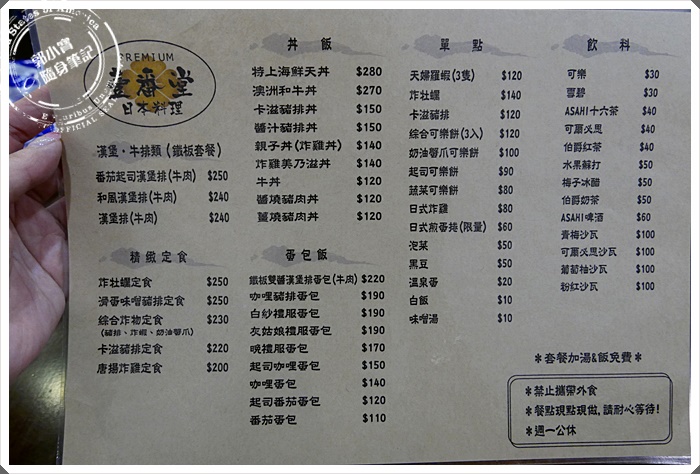 郭小寶
隨身筆記
PREMIUM
壹番堂
日本料理
漢堡・牛排類 (鐵板套餐)
番茄起司漢堡排(牛肉) $250
和風漢堡排(牛肉) $240
漢堡排(牛肉) $240
精緻定食
炸牡蠣定食 $250
滑蛋味噌豬排定食 $250
綜合炸物定食 $230
(豬排、炸蝦、奶油蟹爪)
卡滋豬排定食 $220
唐揚炸雞定食 $200
丼飯
特上海鮮天丼 $280
澳洲和牛丼 $270
卡滋豬排丼 $150
醬汁豬排丼 $150
親子丼 (炸雞丼) $140
炸雞美乃滋丼 $140
牛丼 $120
醬燒豬肉丼 $120
薑燒豬肉丼 $120
蛋包飯
鐵板雙醬漢堡排蛋包(牛肉) $220
咖哩豬排蛋包 $190
白紗禮服蛋包 $190
灰姑娘禮服蛋包 $190
晚禮服蛋包 $170
起司咖哩蛋包 $150
咖哩蛋包 $140
起司番茄蛋包 $120
番茄蛋包 $110
單點
天婦羅蝦(3隻) $120
炸牡蠣 $140
卡滋豬排 $120
綜合可樂餅(3入) $120
奶油蟹爪可樂餅 $100
起司可樂餅 $90
蔬菜可樂餅 $80
日式炸雞 $80
日式煎蛋捲(限量) $60
泡菜 $50
黑豆 $50
溫泉蛋 $20
白飯 $10
味噌湯 $10
飲料
可樂 $30
雪碧 $30
ASAHI十六茶 $40
可爾必思 $40
伯爵紅茶 $40
水果蘇打 $50
梅子冰醋 $50
伯爵奶茶 $50
ASAHI啤酒 $60
青梅沙瓦 $100
可爾必思沙瓦 $100
葡萄柚沙瓦 $100
粉紅沙瓦 $100
*套餐加湯&飯免費*
*禁止攜帶外食
*餐點現點現做,請耐心等待!
*週一公休